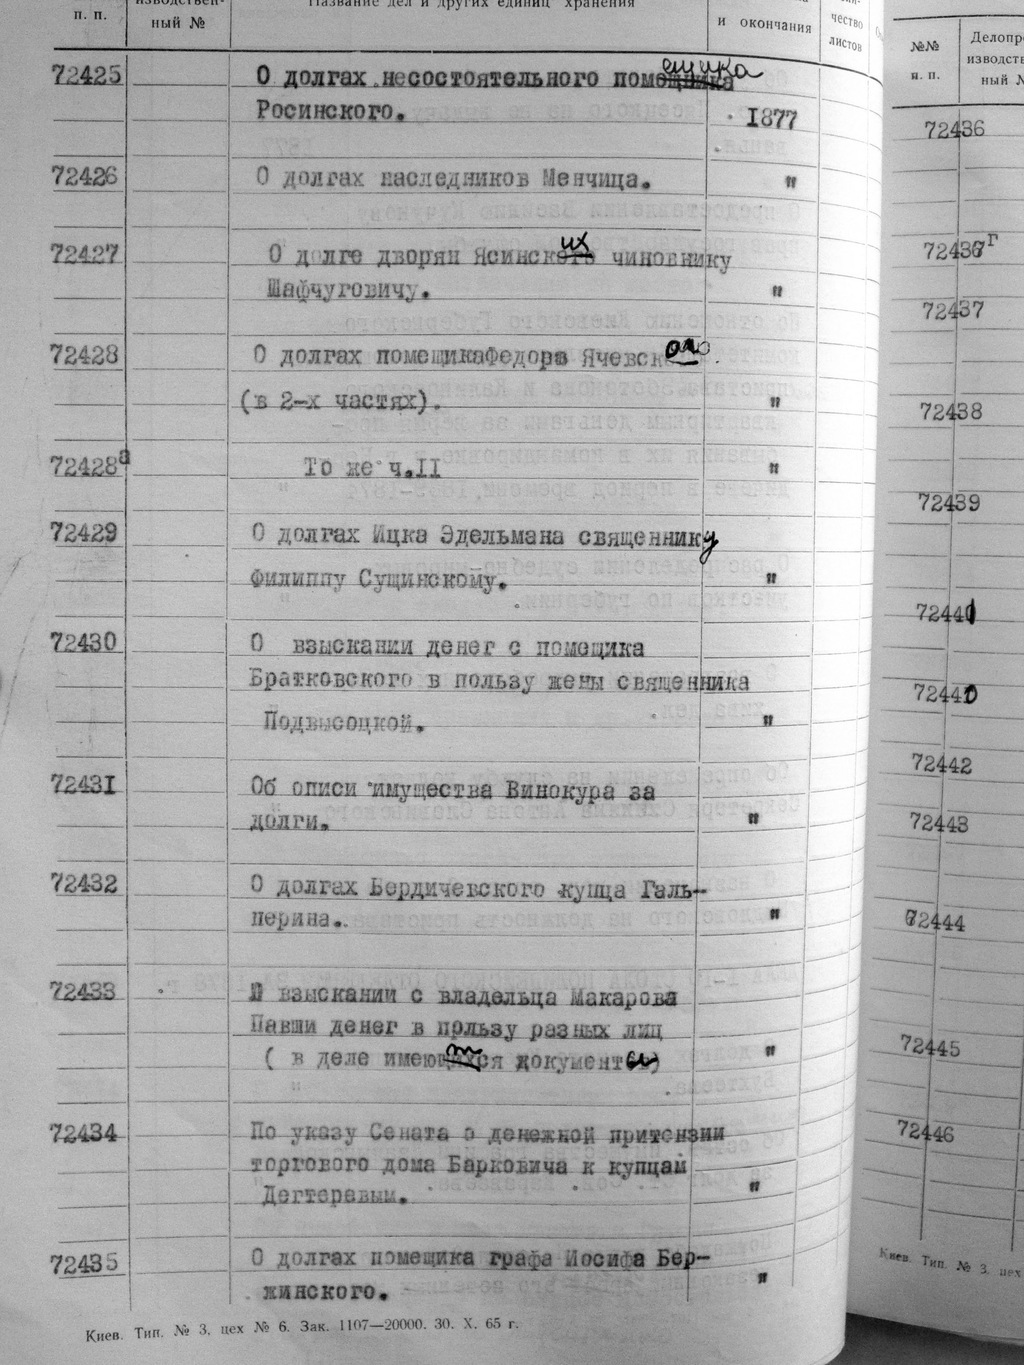 п. п.
изводствен-
ный №
Название дел и других единиц хранения
и окончания
чество
листов
72425 О долгах несостоятельного помещика
Росинского. 1877
72426 О долгах наследников Менчица. "
72427 О долге дворян Ясинских чиновнику
Шафчуговичу. "
72428 О долгах помещикаФедора Ячевского.
(в 2-х частях). "
72428а То же ч.II "
72429 О долгах Ицка Эдельмана священнику
Филиппу Сущинскому. "
72430 О взыскании денег с помещика
Братковского в пользу жены священника
Подвысоцкой. "
72431 Об описи имущества Винокура за
долги. "
72432 О долгах Бердичевского купца Галь-
перина. "
72433 О взыскании с владельца Макарова
Павши денег в пользу разных лиц
( в деле имеются документы) "
72434 По указу Сената о денежной притензии
торгового дома Барковича к купцам
Дегтеравым. "
72435 О долгах помещика графа Иосифа Бер-
жинского. "
Киев. Тип. № 3, цех № 6. Зак. 1107—20000. 30. X. 65 г.
№№
п. п.
Делопро
изводств
ный №
72436
72436г
72437
72438
72439
72441
72440
72442
72443
72444
72445
72446
Киев. Тип. № 3, цех